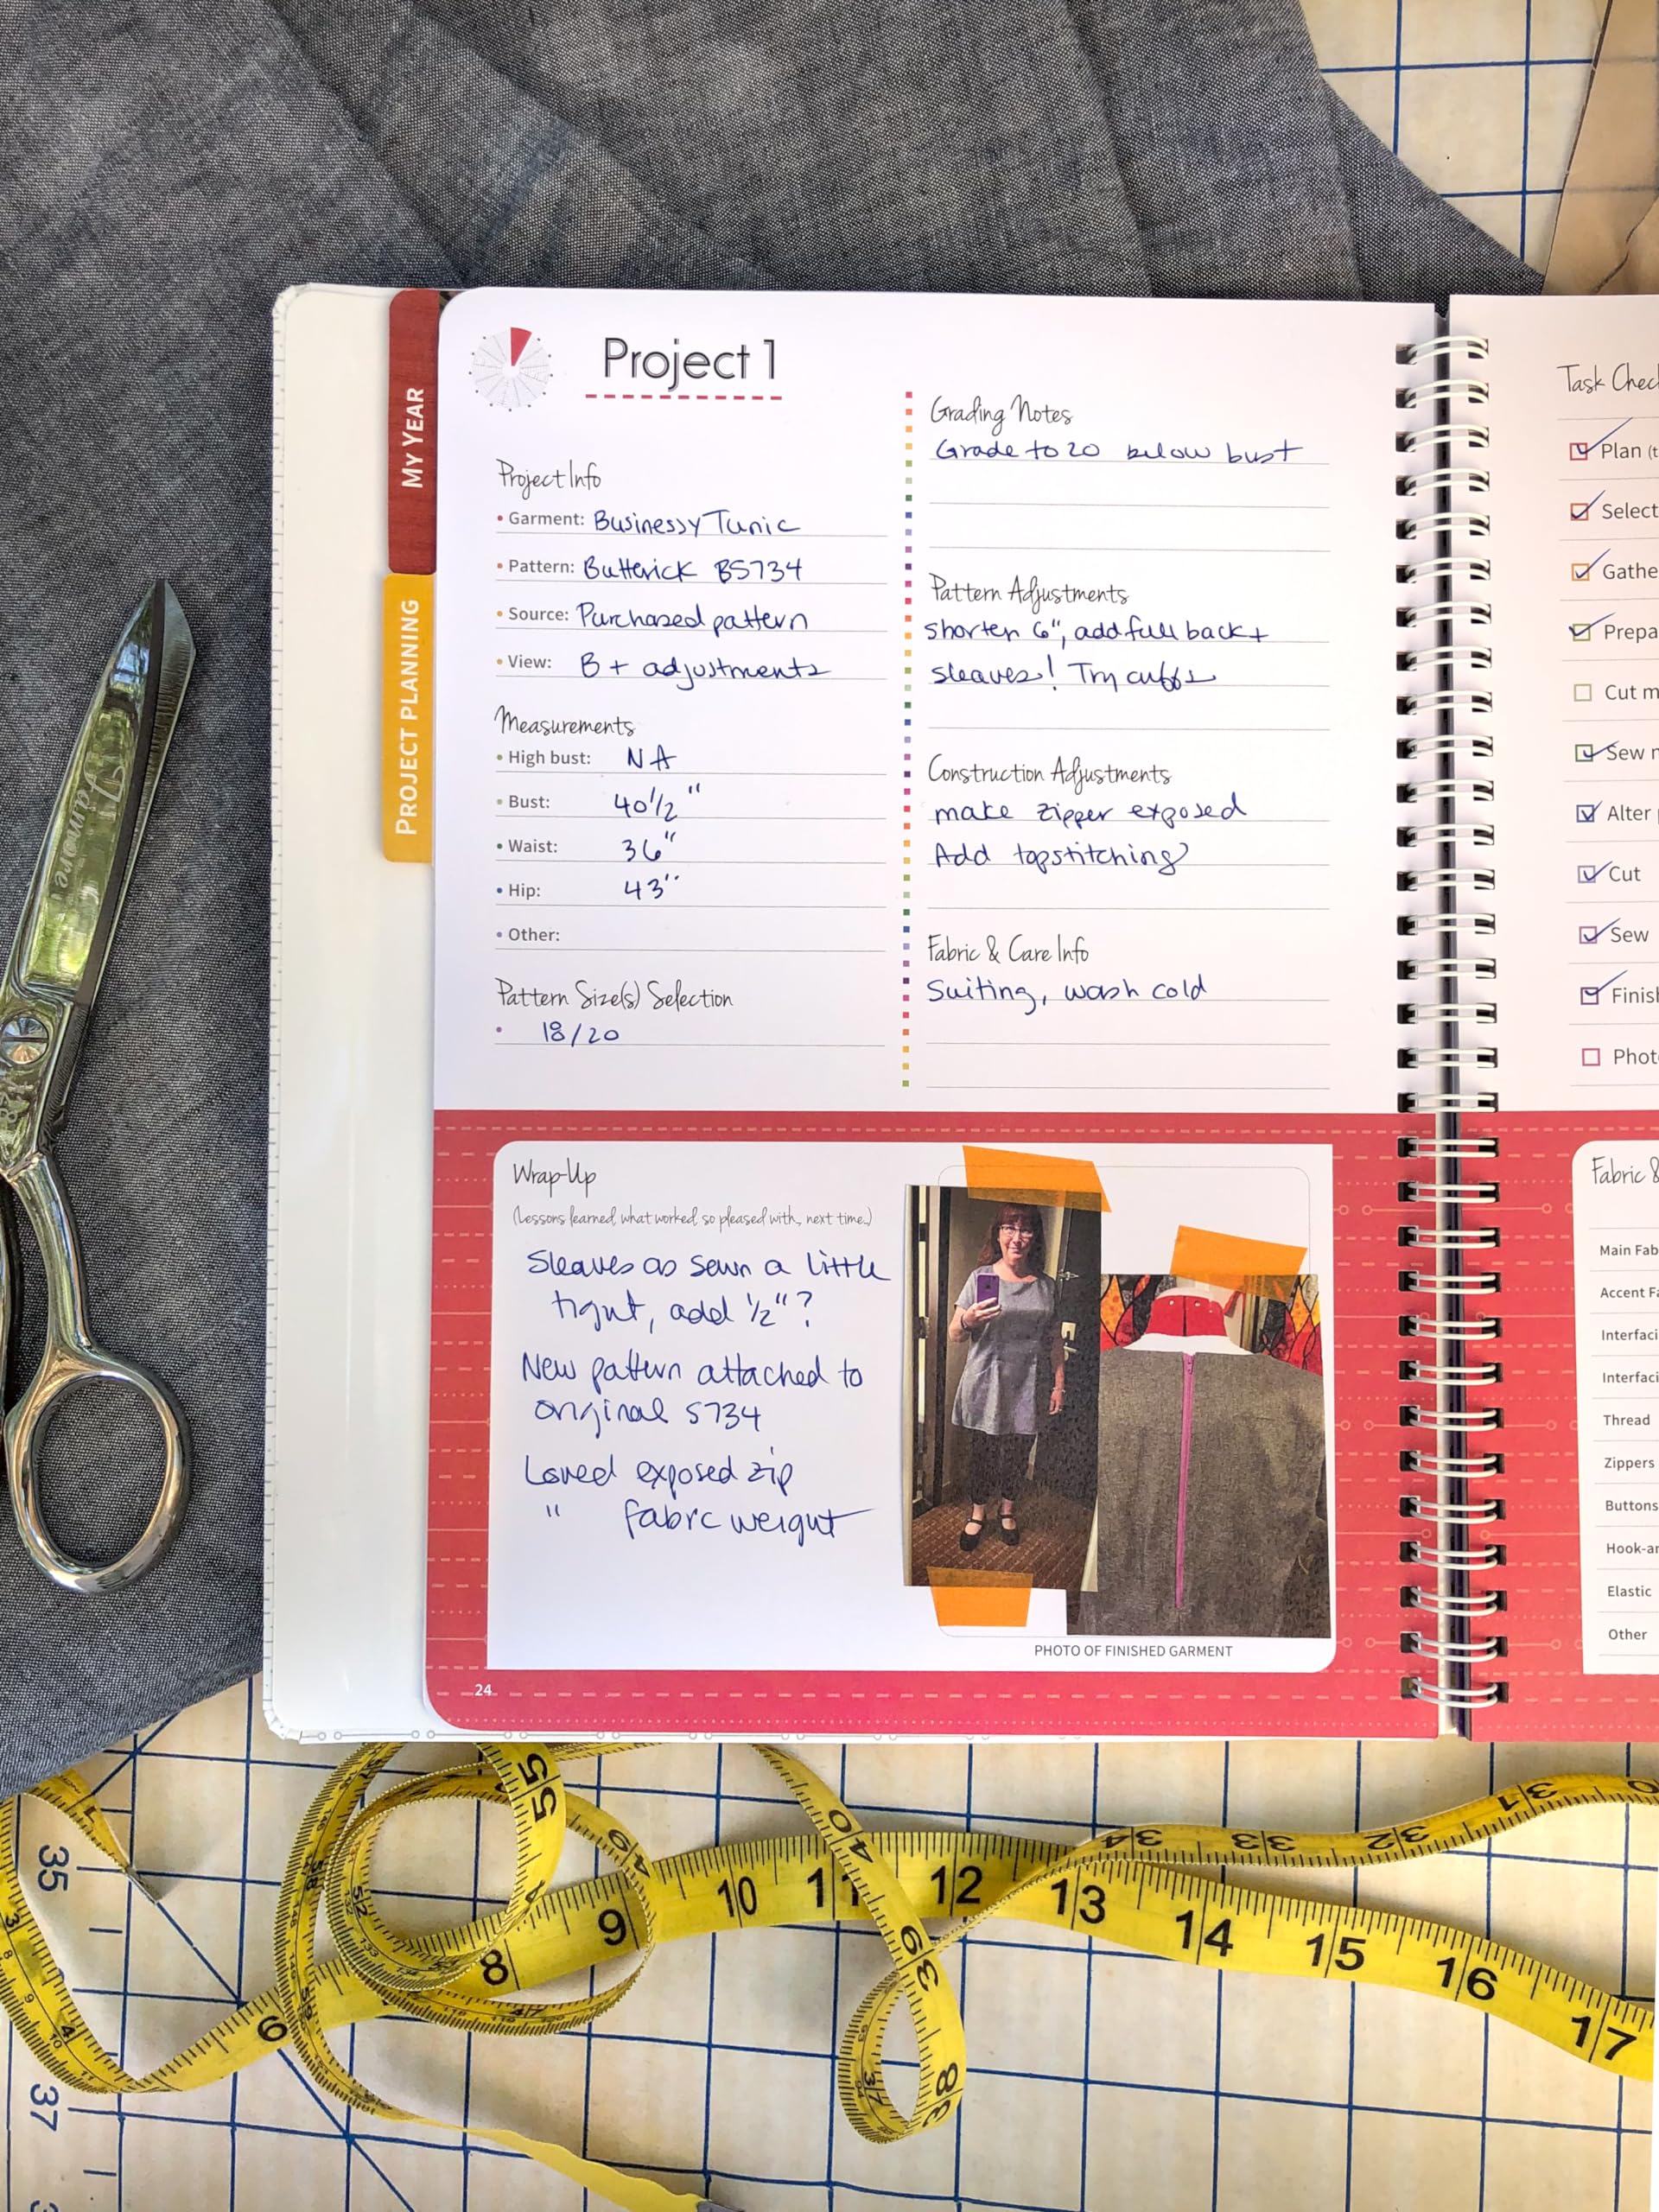 MY YEAR
PROJECT PLANNING
Project 1
Project Info
• Garment: Businessy Tunic
• Pattern: Butterick B5734
• Source: Purchased pattern
• View: B + adjustments
Measurements
• High bust: NA
• Bust: 40 1/2"
• Waist: 36"
• Hip: 43"
• Other:
Pattern Size(s) Selection
• 18/20
Grading Notes
Grade to 20 below bust
Pattern Adjustments
shorten 6", add full back +
sleaves! Try cuffs
Construction Adjustments
make zipper exposed
Add topstitching
Fabric & Care Info
Suiting, wash cold
Wrap-Up
(Lessons learned, what worked, so pleased with, next time..)
Sleaves as sewn a little
tight, add 1/2"?
New pattern attached to
original 5734
Loved exposed zip
" fabrc weight
PHOTO OF FINISHED GARMENT
24
Task Chec
Plan (t
Select
Gathe
Prepa
Cut m
Sew m
Alter
Cut
Sew
Finish
Phot
Fabric &
Main Fab
Accent Fa
Interfaci
Interfaci
Thread
Zippers
Buttons
Hook-an
Elastic
Other
55
49
40
39
38
37
34
33
32
31
6
8
9
10
11
12
13
14
15
16
17
35
37